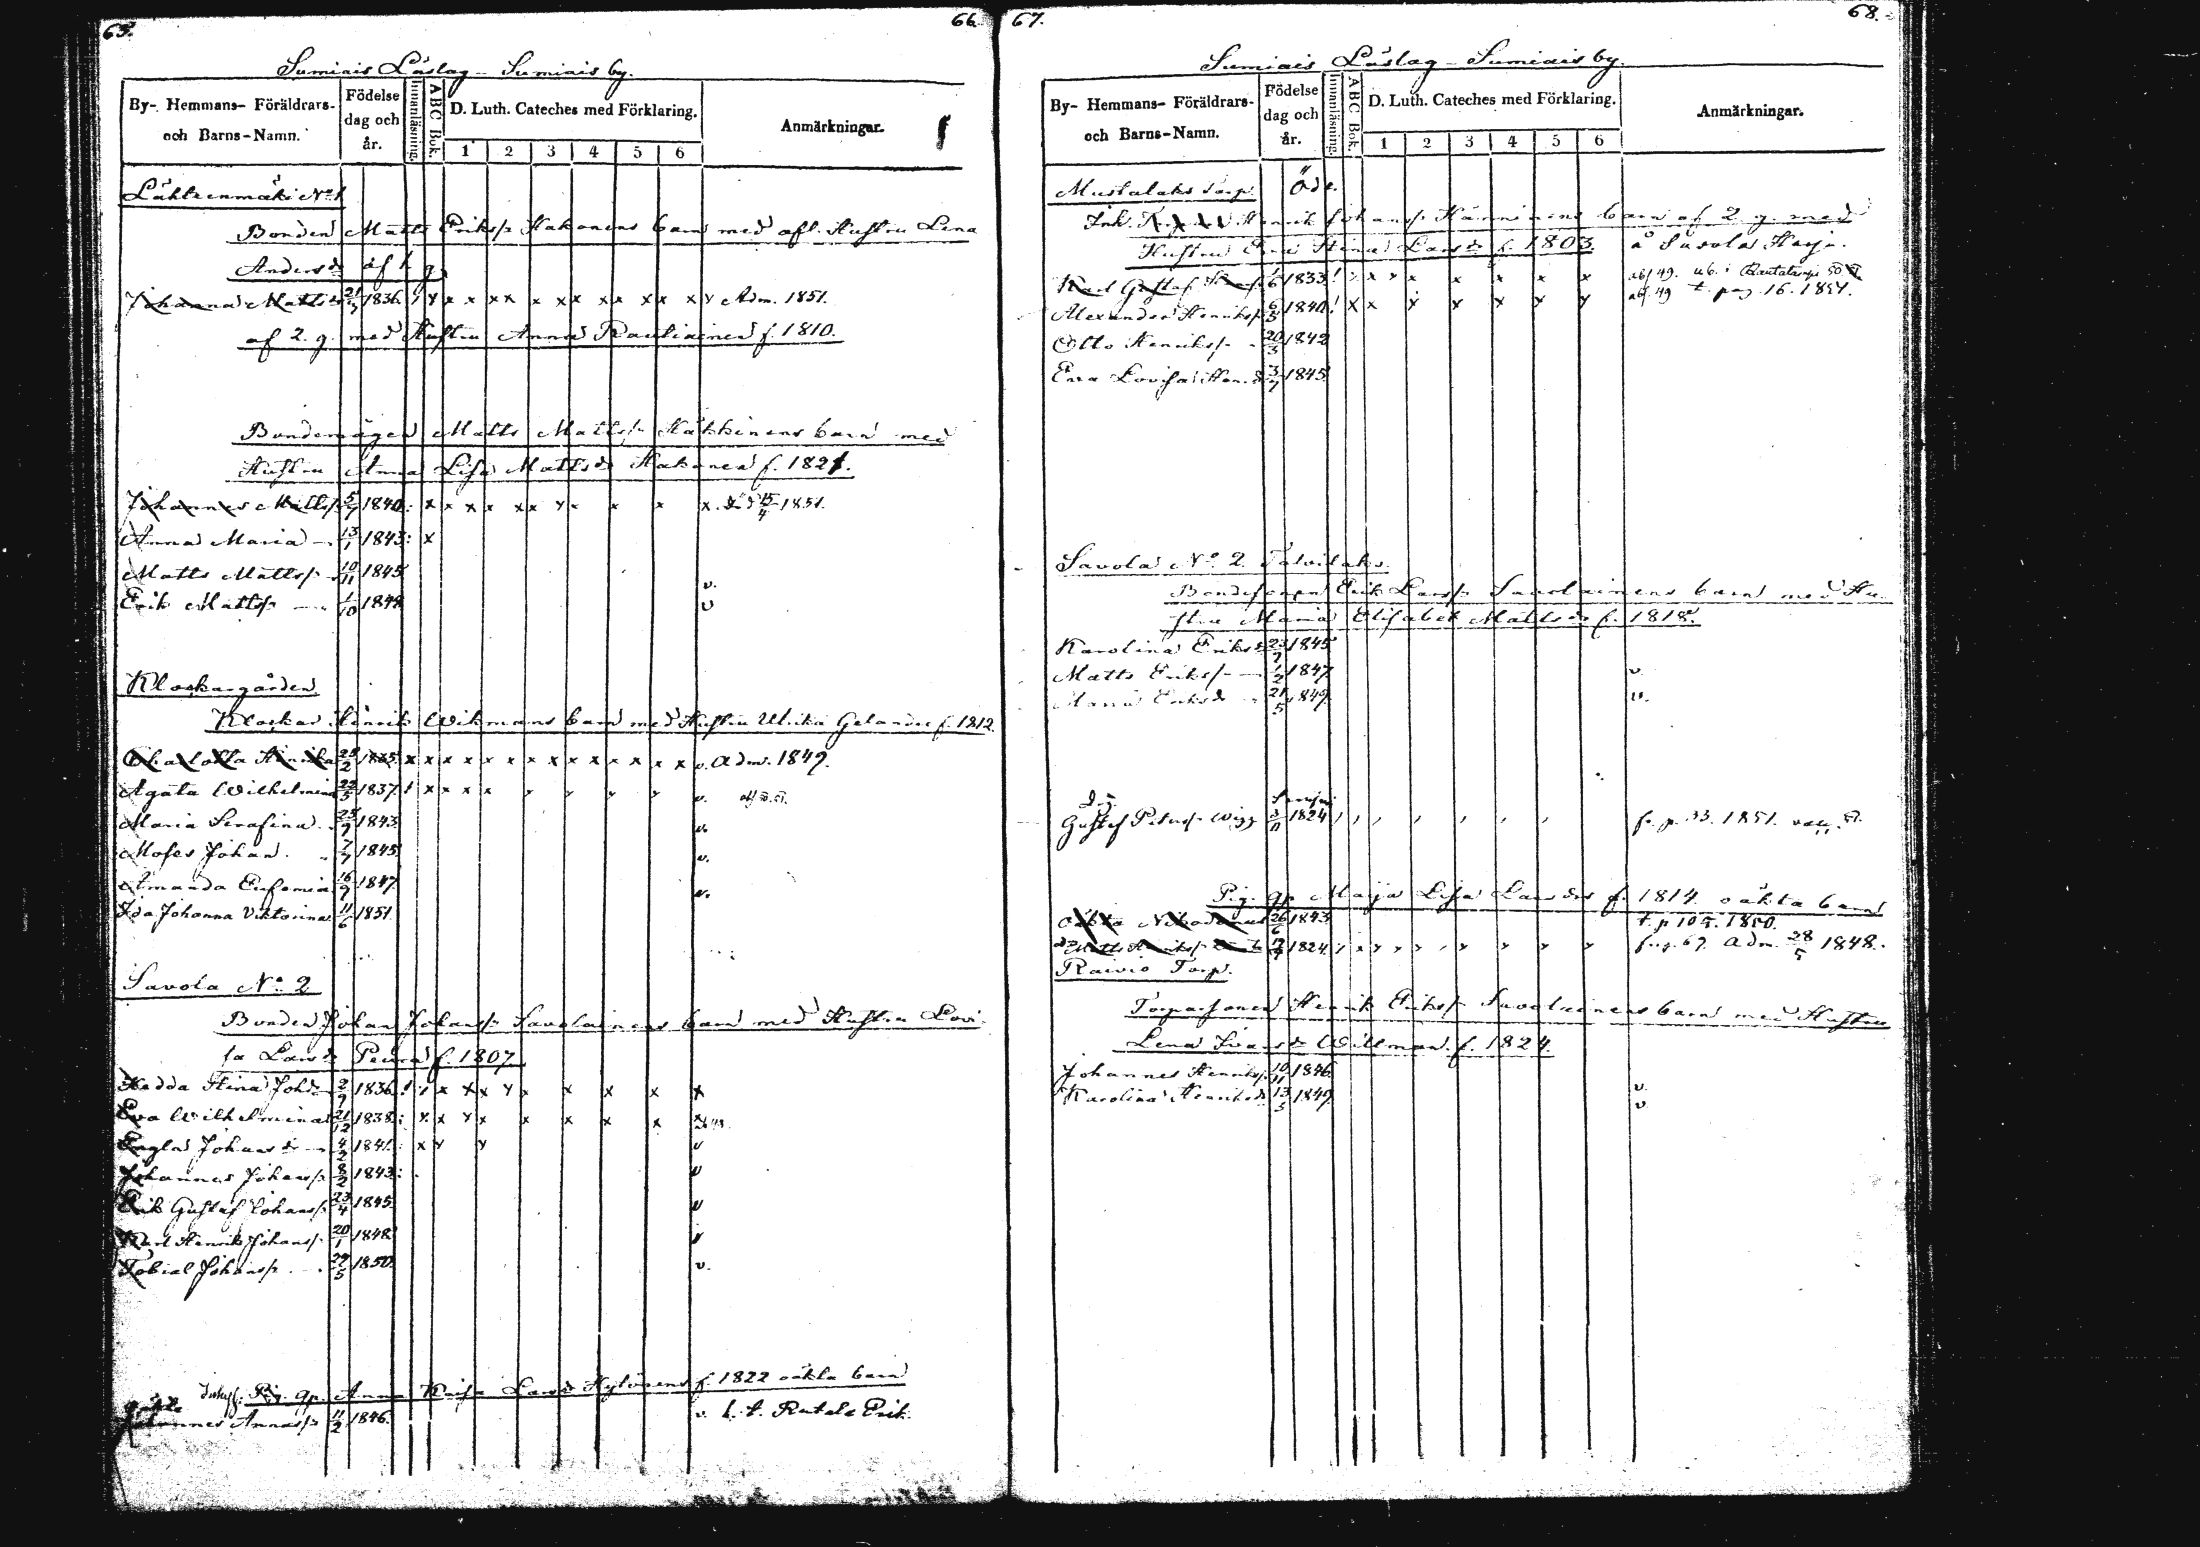 65. 66.
Sumiais Läslag - Sumiais by.
By-, Hemmans- Föräldrars- och Barns-Namn.
Födelse dag och år.
Innanläsning.
ABC Bok.
D. Luth. Cateches med Förklaring.
1 2 3 4 5 6
Anmärkningar.
Lähteenmäki No 1
Bonden Matts Erikss. Hakonens barn med afl. Hustru Lena
Andersdr af 1 g.
Johanna Mattsdr 21/7 1836 Adm. 1851.
af 2. g. med Hustru Anna Rautiainen f. 1810.
Bondemågen Matts Mattss. Häkkinens barn med
Hustru Anna Lisa Mattsdr Hakonen f. 1821.
Johannes Mattss. 5/7 1840 död 15/4 1851.
Anna Maria 13/1 1843
Matts Mattss. 10/11 1845 v.
Erik Mattss. 1/10 1848 v
Klockaregården
Klockar Henrik Wikmans barn med Hustru Ulrika Gelander f. 1812
Charlotta Henrika 28/2 1835 v. Adm. 1849.
Agata Wilhelmina 22/5 1837 v.
Maria Serafina 28/9 1843 v.
Moses Johan 7/7 1845 v.
Amanda Eufemia 16/9 1847 v.
Ida Johanna Viktorina 11/6 1851
Savola No 2
Bonden Johan Johanss. Savolainens barn med Hustru Lovi-
sa Larsdr Peura f. 1807.
Hedda Stina Johdr 2/9 1836
Eva Wilhelmina 21/12 1838
Engla Johansdr 4/2 1841 v
Johannes Johanss. 8/2 1843 v
Erik Gustaf Johanss. 23/4 1845 v
Karl Henrik Johanss. 20/1 1848 v
Tobias Johanss. 29/5 1850 v.
Inhys. Pig. qp. Anna Kaisa Larsdr Hytönens f. 1822 oäkta barn
Johannes Annass. 11/2 1846 v.
67. 68.
Sumiais Läslag - Sumiais by.
By- Hemmans- Föräldrars- och Barns-Namn.
Födelse dag och år.
Innanläsning.
ABC Bok.
D. Luth. Cateches med Förklaring.
1 2 3 4 5 6
Anmärkningar.
Mustalaks Torp. Öde.
Inh. Henrik Johanss. Hänninens barn af 2. g. med
Hustru Eva Stina Larsdr f. 1803. å Savola Harju.
Karl Gustaf 1833
Alexander Henrikss. 6/5 1840 t. pag. 16. 1854.
Otto Henrikss. 20/3 1842
Eva Lovisa Hen.dr 3/7 1845
Savola No 2. Talvilaks.
Bondesonen Erik Larss. Savolainens barn med Hu-
stru Maria Elisabet Mattsdr f. 1818.
Karolina Eriksdr 23/7 1845
Matts Erikss. 1/2 1847 v.
Maria Eriksdr 21/5 1849 v.
Gustaf Peterss. Wigg 3/11 1824 fr. p. 33. 1851.
Pig. qp. Maija Lisa Larsdrs f. 1814. oäkta barn
Nikodemus 26/6 1843 t. p 105. 1850.
1824 fr. p. 67. Adm. 28/5 1848.
Raivio Torp.
Torparsonen Henrik Erikss. Savolainens barn med Hustru
Lena Svensdr Willman. f. 1824.
Johannes Henrikss. 10/11 1846 v.
Karolina Henriksdr 13/5 1849 v